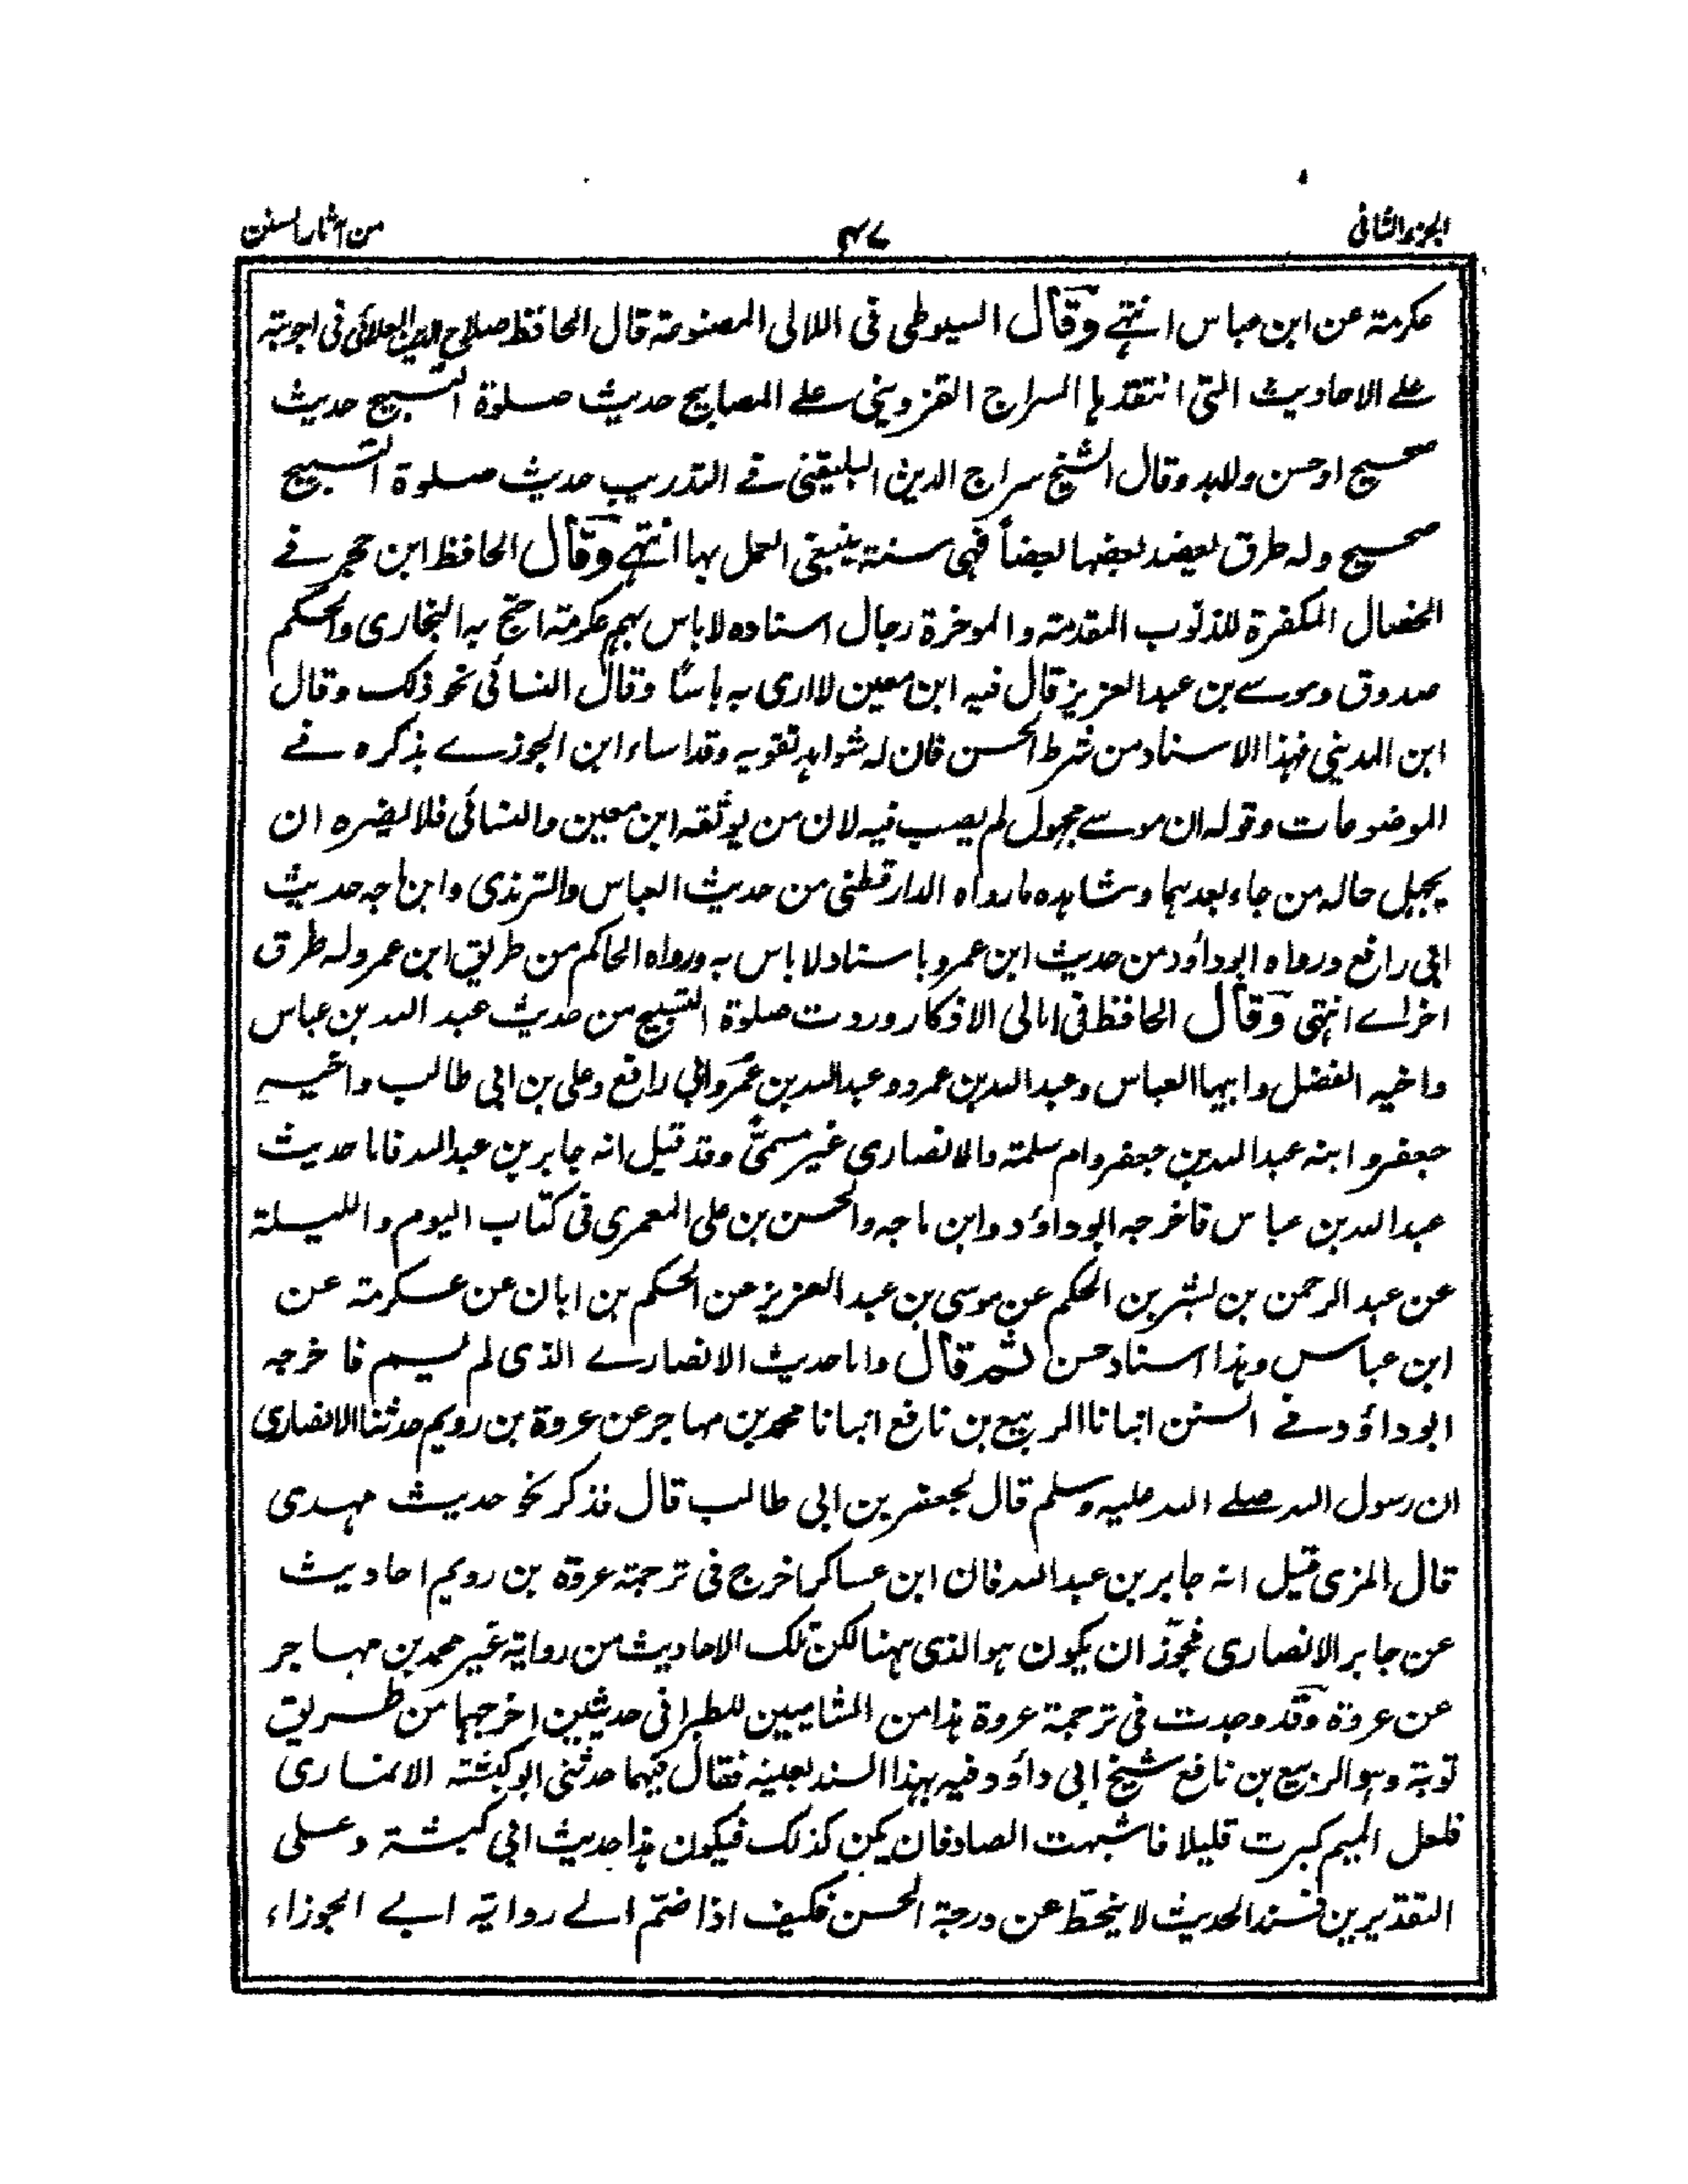 الجزء الثانی ۴۷ من آثار السنن
عکرمة عن ابن عباس انتهے وقال السیوطی فی اللالی المصنوعة قال الحافظ صلاح الدین العلائی فی اجوبته
علے الاحادیث التی انتقدہا السراج القزوینی علے المصابیح حدیث صلوة التسبیح حدیث
صحیح او حسن ولابد وقال الشیخ سراج الدین البلیقنی فے التدریب حدیث صلوة التسبیح
صحیح وله طرق یعضد بعضها بعضاً فہی سنة ینبغی العمل بہا انتهے وقال الحافظ ابن حجر فے
الخصال المکفرة للذنوب المقدمة والموخرة رجال اسناده لا باس بہم عکرمة احتج به البخاری والحکم
صدوق وموسے بن عبد العزیز قال فیه ابن معین لا اری به باسًا وقال النسائی نحو ذلک وقال
ابن المدینی فہذا الاسناد من شرط الحسن فان له شواہد تقویه وقد اساء ابن الجوزے بذکره فے
الموضوعات وقوله ان موسے مجہول لم یصب فیه لان من یوثقه ابن معین والنسائی فلا یضره ان
یجہل حاله من جاء بعدہما وشاہده ما رواه الدارقطنی من حدیث العباس والترمذی وابن ماجه حدیث
ابی رافع ورواه ابو داؤد من حدیث ابن عمرو باسناد لا باس به ورواه الحاکم من طریق ابن عمر وله طرق
اخراے انتہی وقال الحافظ فی امالی الاذکار وردت صلوة التسبیح من حدیث عبد الله بن عباس
واخیه الفضل وابیہما العباس وعبد الله بن عمرو وعبد الله بن عمر وابی رافع وعلی بن ابی طالب واخیه
جعفر وابنه عبد الله بن جعفر وام سلمة والانصاری غیر مسمیًّ وقد قیل انه جابر بن عبد الله فاما حدیث
عبد الله بن عباس فاخرجه ابو داؤد وابن ماجه والحسن بن علی المعمری فی کتاب الیوم واللیلة
عن عبد الرحمن بن بشر بن الحکم عن موسی بن عبد العزیز عن الحکم بن ابان عن عکرمة عن
ابن عباس وہذا اسناد حسن ثم قال واما حدیث الانصارے الذی لم یسم فاخرجه
ابو داؤد فے السنن انبانا الربیع بن نافع انبانا محمد بن مہاجر عن عروة بن رویم حدثنا الانصاری
ان رسول الله صلے الله علیه وسلم قال لجعفر بن ابی طالب قال فذکر نحو حدیث مہدی
قال المزی قیل انه جابر بن عبد الله فان ابن عساکر اخرج فی ترجمة عروة بن رویم احادیث
عن جابر الانصاری فجوّز ان یکون ہو الذی ہہنا لکن تلک الاحادیث من روایة غیر محمد بن مہاجر
عن عروة وقد وجدت فی ترجمة عروة ہذا من الشامیین للطبرانی حدیثین اخرجہما من طریق
توبة وہو الربیع بن نافع شیخ ابی داؤد فیه بہذا السند بعینه فقال فیہما حدثنی ابو کبشة الانماری
فلعل المیم کبرت قلیلا فاشبہت الصاد فان یکن کذلک فیکون ہذا حدیث ابی کبشة وعلی
التقدیرین فسند الحدیث لا ینحطّ عن درجة الحسن فکیف اذا ضمّ الے روایة ابے الجوزاء